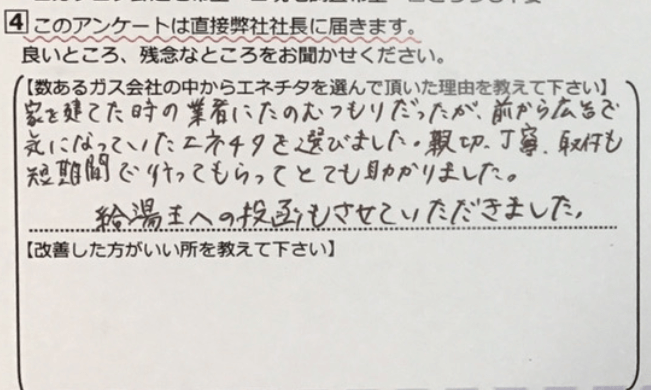 4 このアンケートは直接弊社社長に届きます。
良いところ、残念なところをお聞かせください。
【数あるガス会社の中からエネチタを選んで頂いた理由を教えて下さい】
家を建てた時の業者にたのむつもりだったが、前から広告で
気になっていたエネチタを選びました。親切、丁寧、取付も
短期間で行ってもらってとても助かりました。
給湯王への投函もさせていただきました。
【改善した方がいい所を教えて下さい】